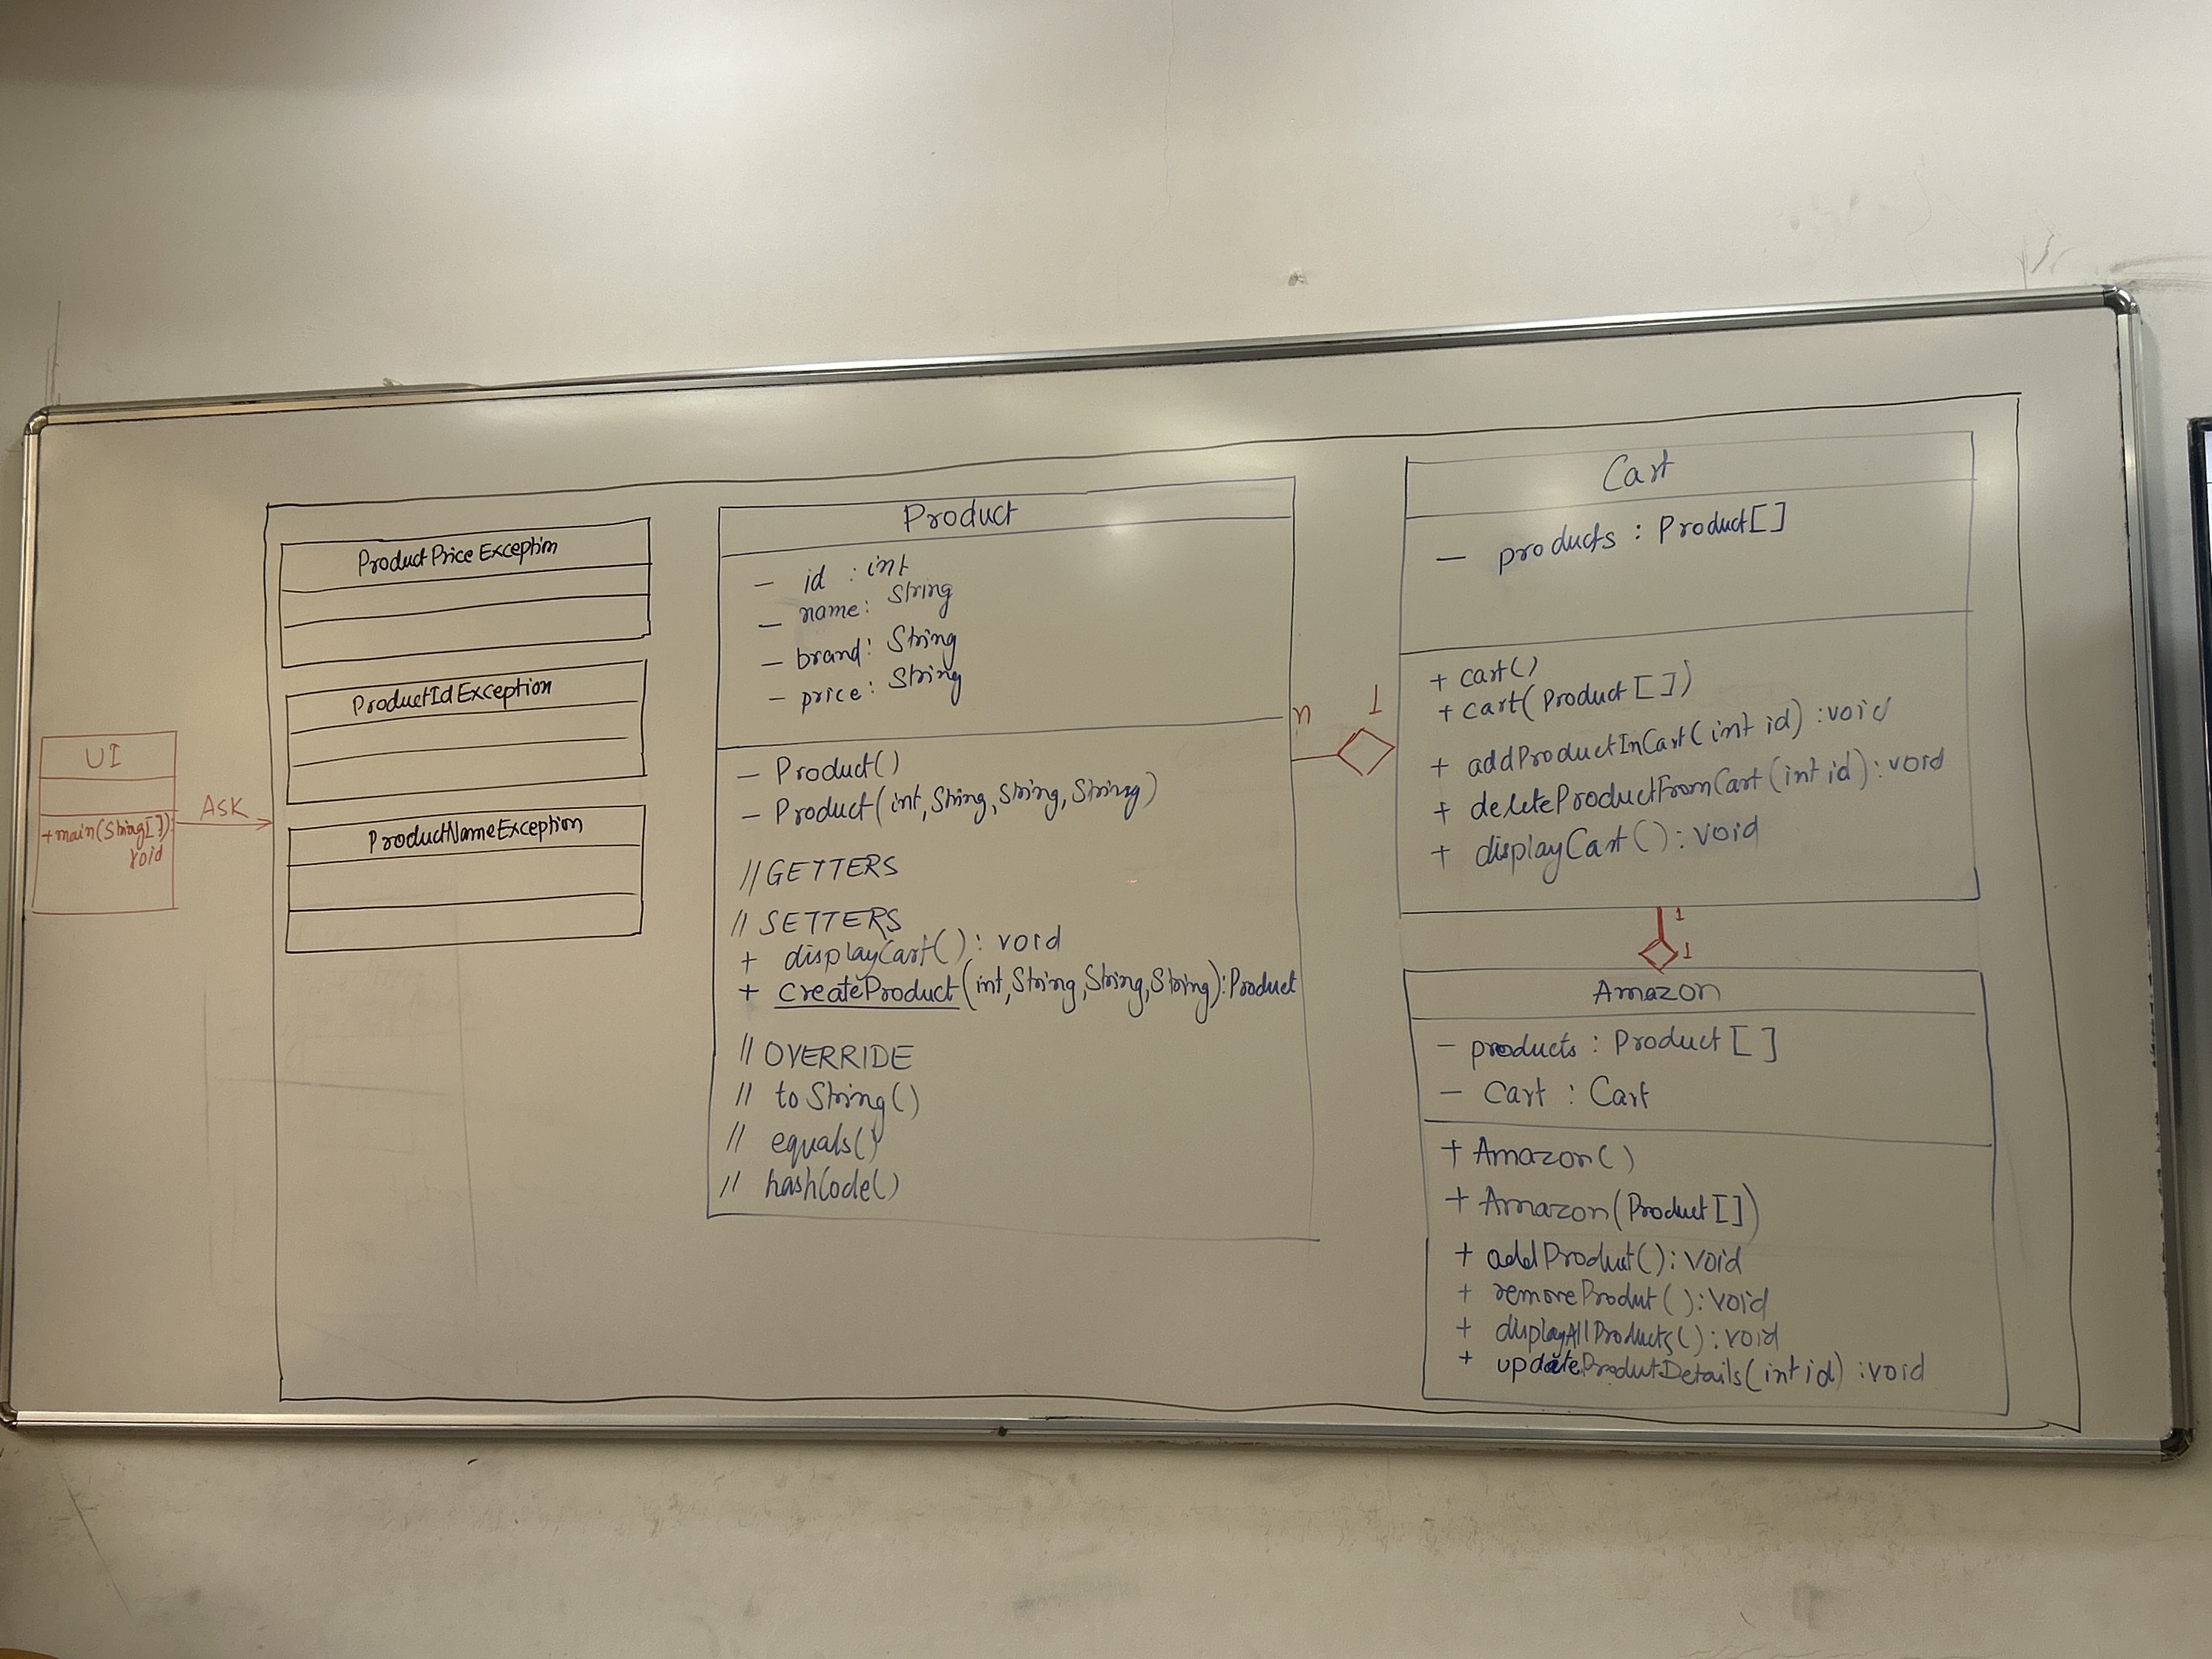 UI
+main(String[]):
void
ASK
ProductPriceException
ProductIdException
ProductNameException
Product
- id : int
- name: String
- brand: String
- price: String
- Product()
- Product(int, String, String, String)
// GETTERS
// SETTERS
+ displayCart() : void
+ createProduct(int, String, String, String):Product
// OVERRIDE
// toString()
// equals()
// hashCode()
n
1
Cart
- products : Product[]
+ cart()
+ cart(Product[])
+ addProductInCart(int id) : void
+ deleteProductFromCart(int id) : void
+ displayCart() : void
1
1
Amazon
- products : Product[]
- Cart : Cart
+ Amazon()
+ Amazon(Product[])
+ addProduct() : void
+ removeProdut() : void
+ displayAllProducts() : void
+ updateProdutDetails(int id) : void